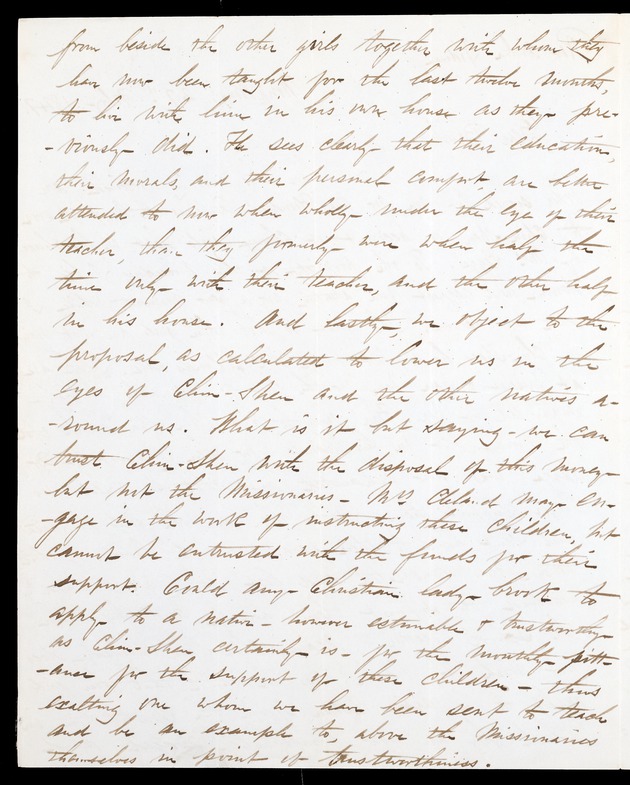 from beside the other girls together with whom they
have now been taught for the last twelve months,
to live with him in his own house as they pre-
-viously did. He sees clearly that their education,
their morals, and their personal comfort, are better
attended to now when wholly under the eye of their
teacher, than they formerly were when half the
time only with their teacher, and the other half
in his house. And lastly, we object to the
proposal, as calculated to lower us in the
eyes of Chin-Shen and the other natives a-
-round us. What is it but saying - we can
trust Chin-Shen with the disposal of this money
but not the Missionaries - Mrs Cleland may en-
-gage in the work of instructing these children, but
cannot be entrusted with the funds for their
support. Could any Christian lady brook to
apply to a native - however estimable & trustworthy
as Chin-Shen certainly is - for the monthly pitt-
-ance for the support of these children - thus
exalting one whom we have been sent to teach
and be an example to, above the Missionaries
themselves in point of trustworthiness.